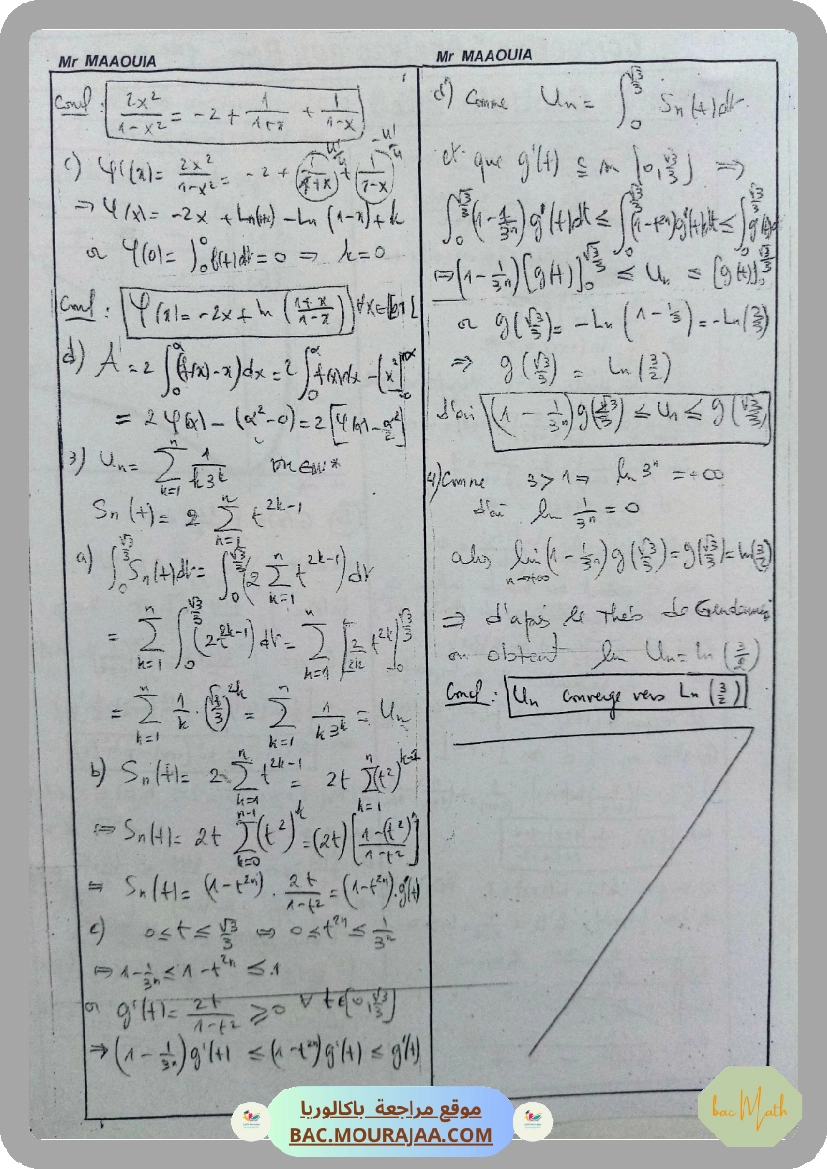 Mr MAAOUIA
Concl : 2x²/(1-x²) = -2 + 1/(1+x) + 1/(1-x)
c) φ'(x) = 2x²/(1-x²) = -2 + 1/(1+x) + 1/(1-x)
⇒ φ(x) = -2x + Ln(1+x) - Ln(1-x) + k
or φ(0) = ∫₀⁰ f(t)dt = 0 ⇒ k=0
Concl : φ(x) = -2x + ln((1+x)/(1-x))
d) A = 2∫₀^α (f(x)-x)dx = 2∫₀^α f(x)dx - [x²]₀^α
= 2φ(α) - (α²-0) = 2[φ(α) - α²/2]
3) Un = Σ_{k=1}^{n} 1/(k3^k) ∀n∈IN*
Sn(t) = 2 Σ_{k=1}^{n} t^{2k-1}
a) ∫₀^{√3/3} Sn(t)dt = ∫₀^{√3/3} (2 Σ_{k=1}^{n} t^{2k-1}) dt
= Σ_{k=1}^{n} ∫₀^{√3/3} (2t^{2k-1}) dt = Σ_{k=1}^{n} [2/2k t^{2k}]₀^{√3/3}
= Σ_{k=1}^{n} 1/k · (√3/3)^{2k} = Σ_{k=1}^{n} 1/(k3^k) = Un
b) Sn(t) = 2 Σ_{k=1}^{n} t^{2k-1} = 2t Σ_{k=1}^{n} (t²)^{k-1}
⇒ Sn(t) = 2t Σ_{k=0}^{n-1} (t²)^k = (2t) [(1-(t²)^n)/(1-t²)]
= Sn(t) = (1-t^{2n}) · 2t/(1-t²) = (1-t^{2n}).g'(t)
c) 0 ≤ t ≤ √3/3 ⇒ 0 ≤ t^{2n} ≤ 1/3^n
⇒ 1 - 1/3^n ≤ 1 - t^{2n} ≤ 1
or g'(t) = 2t/(1-t²) ≥ 0 ∀ t∈[0, √3/3]
⇒ (1 - 1/3^n) g'(t) ≤ (1-t^{2n}) g'(t) ≤ g'(t)
Mr MAAOUIA
d) Comme Un = ∫₀^{√3/3} Sn(t)dt
et que g'(t) [0, √3/3] ⇒
∫₀^{√3/3} (1 - 1/3^n) g'(t)dt ≤ ∫₀^{√3/3} (1-t^{2n}) g'(t)dt ≤ ∫₀^{√3/3} g'(t)dt
⇒ (1 - 1/3^n) [g(t)]₀^{√3/3} ≤ Un ≤ [g(t)]₀^{√3/3}
or g(√3/3) = -Ln(1 - 1/3) = -Ln(2/3)
⇒ g(√3/3) = Ln(3/2)
d'où (1 - 1/3^n) g(√3/3) ≤ Un ≤ g(√3/3)
4) Comme 3 > 1 ⇒ lim 3^n = +∞
d'où lim 1/3^n = 0
alors lim_{n→+∞} (1 - 1/3^n) g(√3/3) = g(√3/3) = ln(3/2)
⇒ d'après le Théo de Gendarmes
on obtient lim Un = ln(3/2)
Concl : Un converge vers Ln(3/2)
موقع مراجعة باكالوريا
BAC.MOURAJAA.COM
bac Math